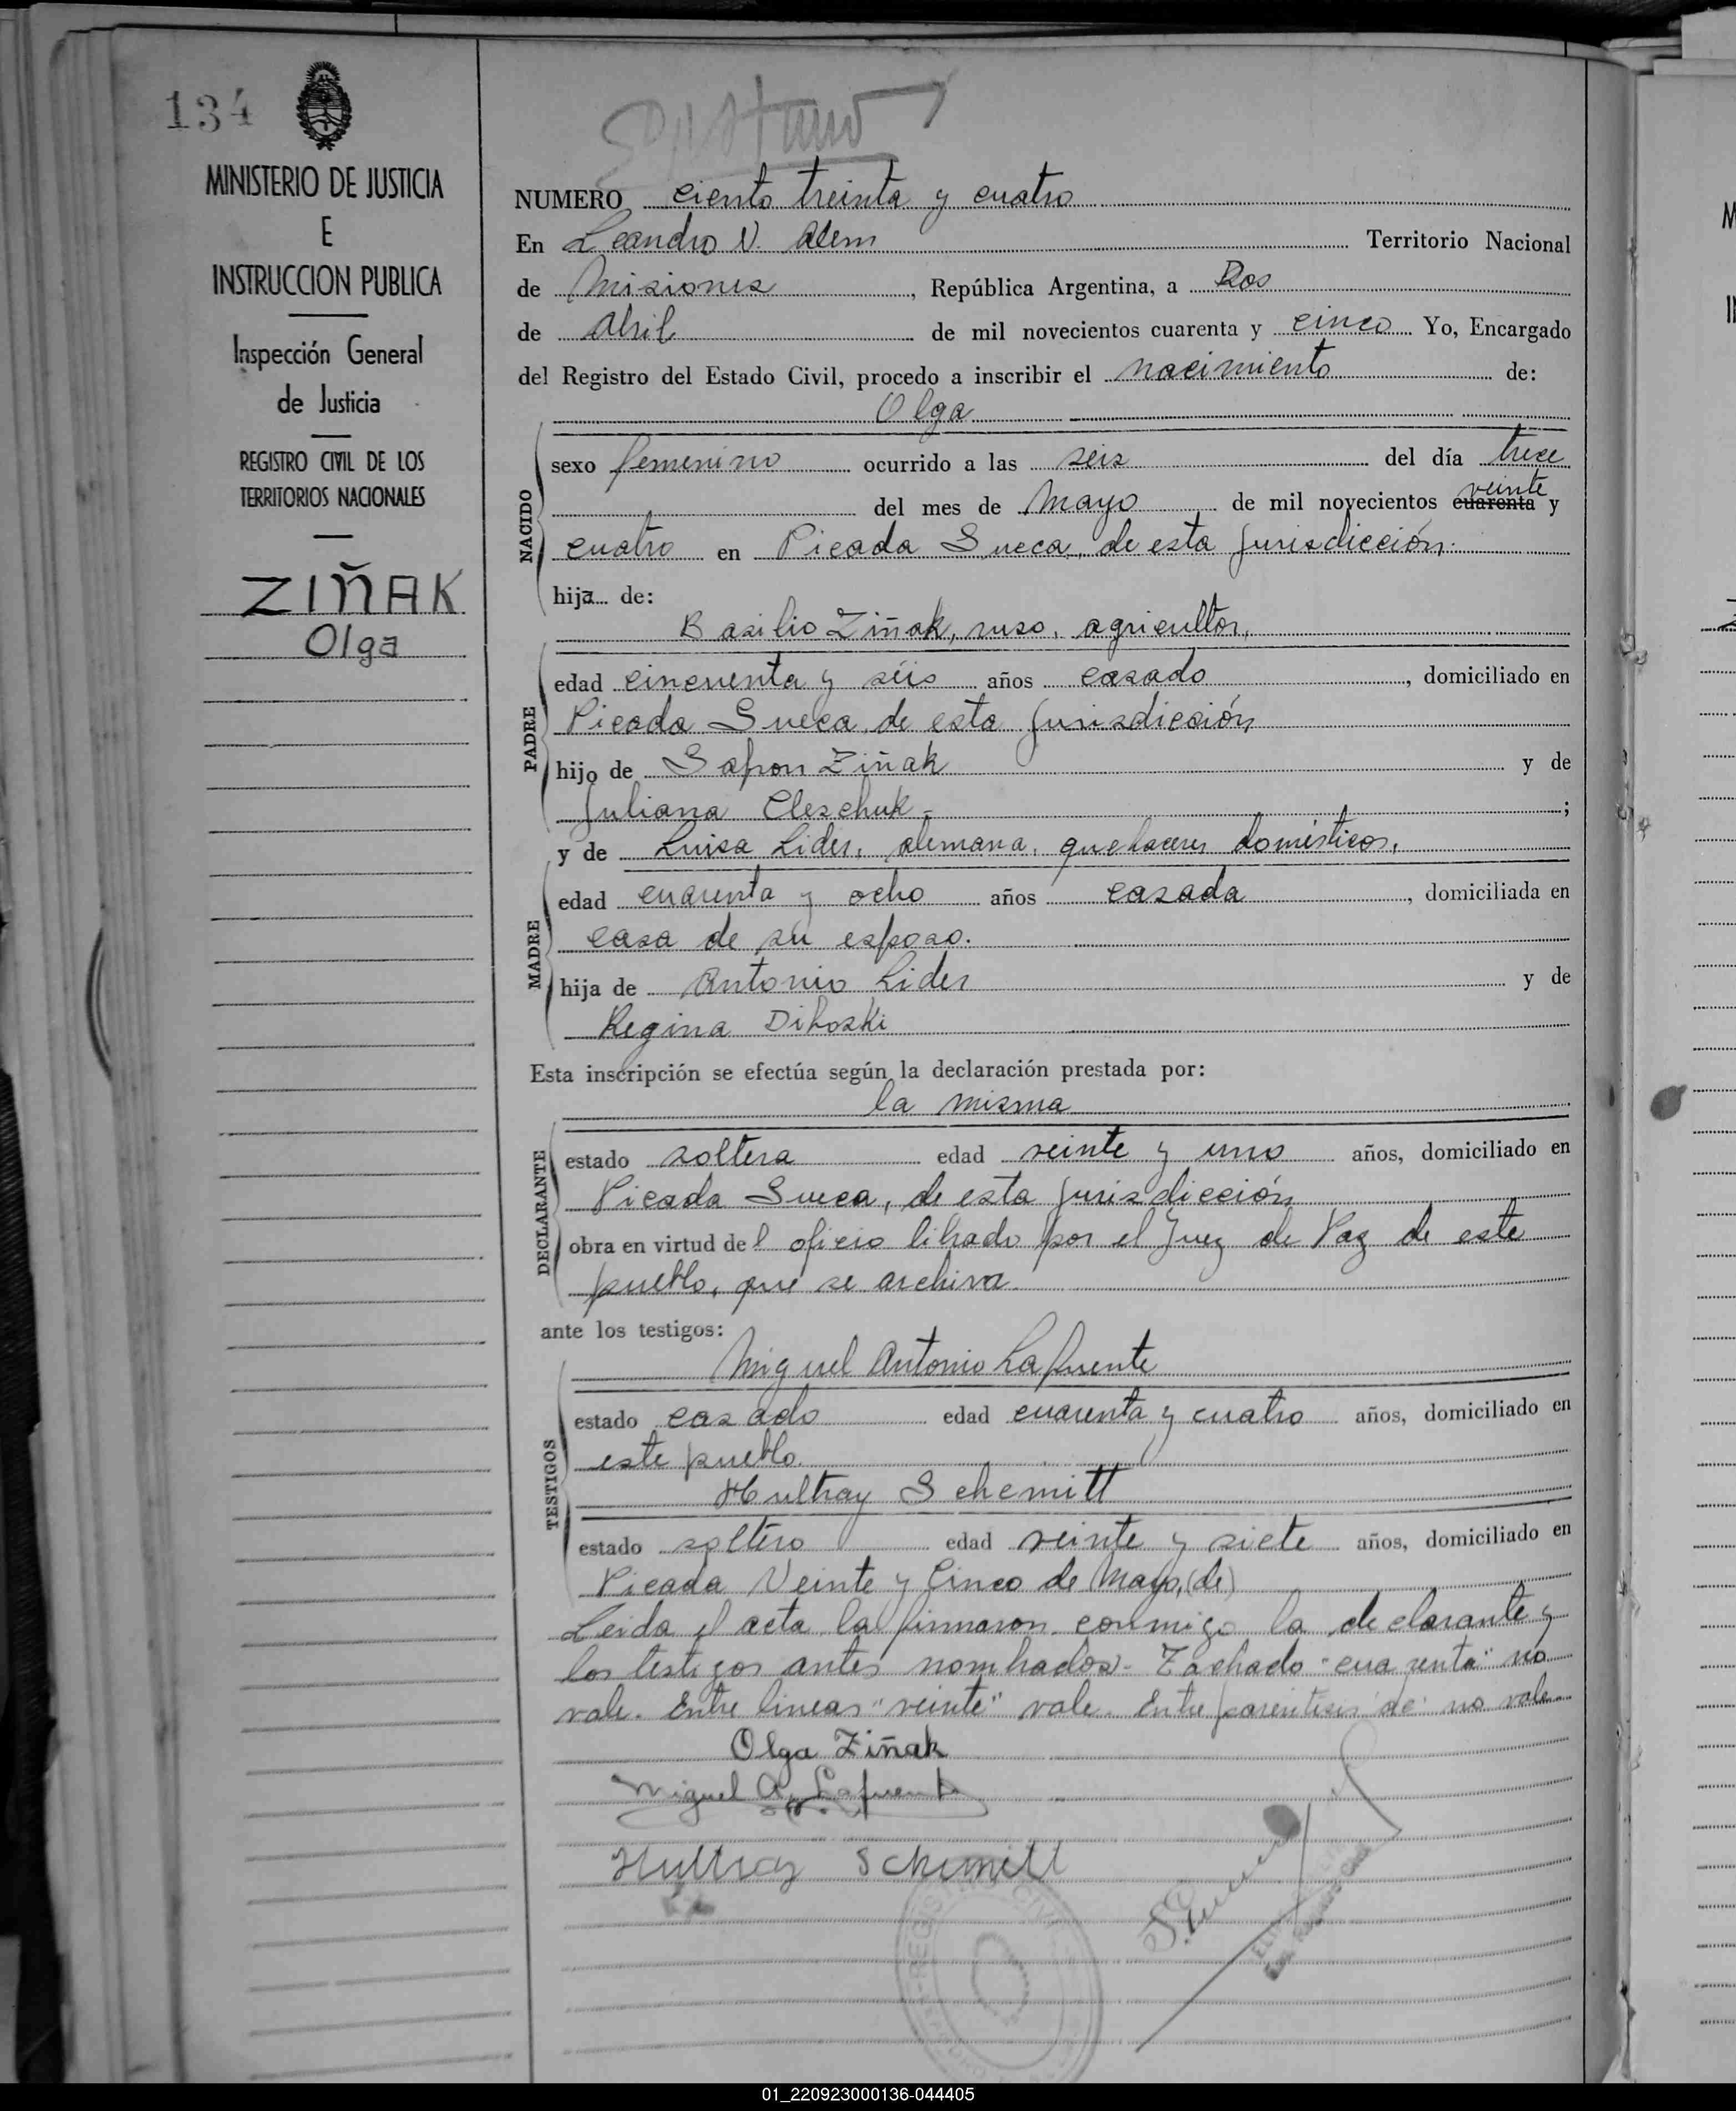 134
MINISTERIO DE JUSTICIA
E
INSTRUCCION PUBLICA
Inspección General
de Justicia
REGISTRO CIVIL DE LOS
TERRITORIOS NACIONALES
ZIÑAK
Olga
NUMERO ciento treinta y cuatro
En Leandro N. Alem Territorio Nacional
de Misiones, República Argentina, a Dos
de Abril de mil novecientos cuarenta y cinco Yo, Encargado
del Registro del Estado Civil, procedo a inscribir el nacimiento de:
Olga
NACIDO
sexo femenino ocurrido a las seis del día trece
del mes de Mayo de mil novecientos cuarenta veinte y
cuatro en Picada Sueca, de esta jurisdicción.
hija de:
Basilio Ziñak, ruso, agricultor,
PADRE
edad cincuenta y seis años casado, domiciliado en
Picada Sueca, de esta jurisdicción
hijo de Safron Ziñak y de
Juliana Cleschuk - ;
y de Luisa Lider, alemana, quehaceres domésticos,
MADRE
edad cuarenta y ocho años casada, domiciliada en
casa de su esposo.
hija de Antonio Lider y de
Regina Dihoski
Esta inscripción se efectúa según la declaración prestada por:
la misma
DECLARANTE
estado soltera edad veinte y uno años, domiciliado en
Picada Sueca, de esta jurisdicción
obra en virtud del oficio librado por el Juez de Paz de este
pueblo, que se archiva.
ante los testigos:
Miguel Antonio Lafuente
TESTIGOS
estado casado edad cuarenta y cuatro años, domiciliado en
este pueblo.
Hultray Schemitt
estado soltero edad veinte y siete años, domiciliado en
Picada Veinte y Cinco de Mayo, (de)
Leida el acta la firmaron conmigo la declarante y
los testigos antes nombrados - Tachado "cuarenta" no
vale. Entre lineas "veinte" vale. Entre parentesis "de" no vale.
Olga Ziñak
Miguel A. Lafuente
Hultray Schemitt
01_220923000136-044405